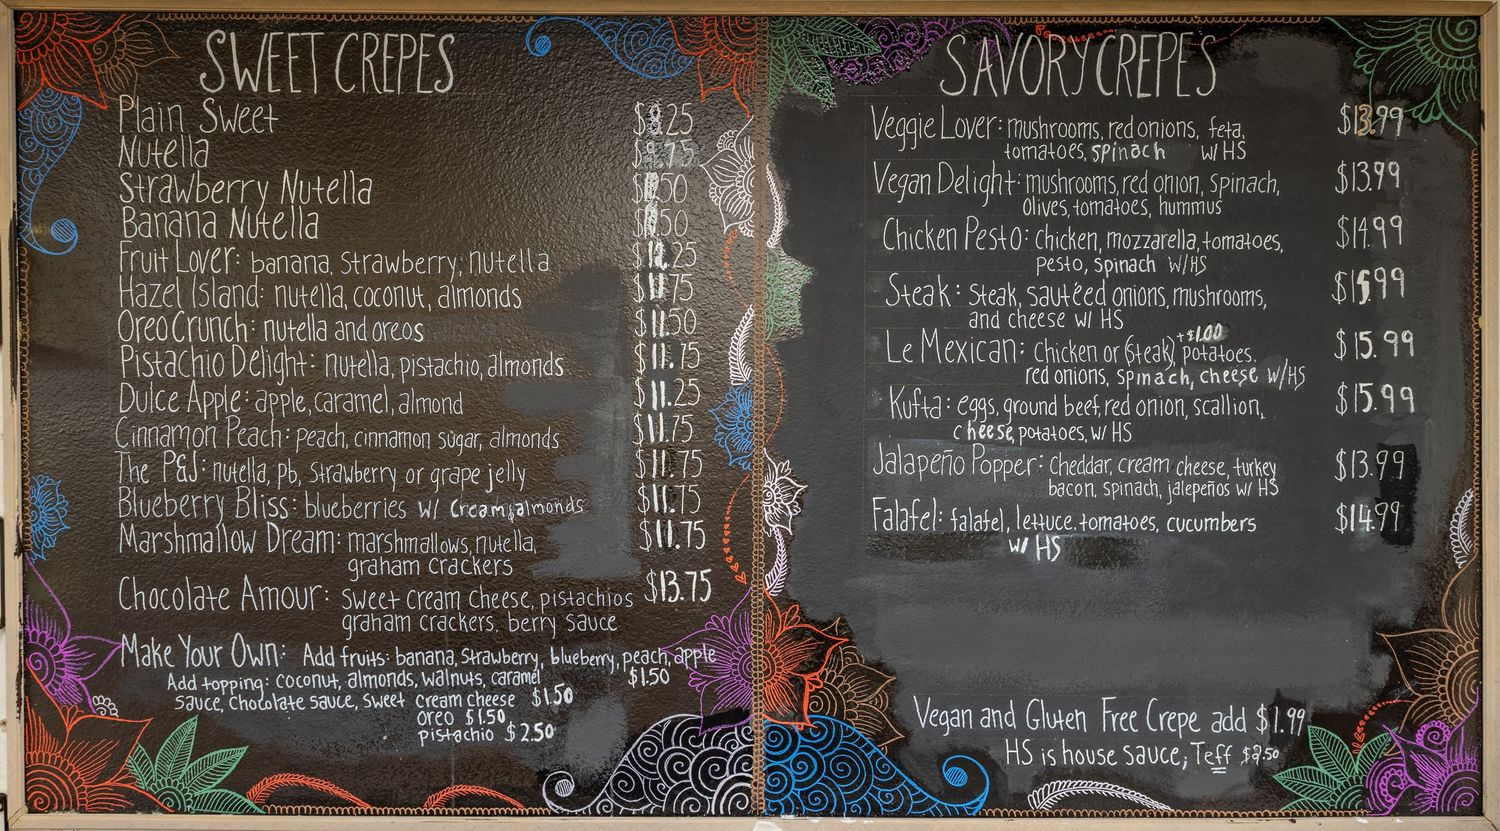 SWEET CREPES
Plain Sweet $9.25
Nutella $9.75
Strawberry Nutella .50
Banana Nutella .50
Fruit Lover: banana, strawberry, nutella .25
Hazel Island: nutella, coconut, almonds $11.75
Oreo Crunch: nutella and oreos $11.50
Pistachio Delight: nutella, pistachio, almonds $11.75
Dulce Apple: apple, caramel, almond $11.25
Cinnamon Peach: peach, cinnamon sugar, almonds $11.75
The P&J: nutella, pb, strawberry or grape jelly $11.75
Blueberry Bliss: blueberries w/ cream & almonds $11.75
Marshmallow Dream: marshmallows, nutella, $11.75
graham crackers
Chocolate Amour: sweet cream cheese, pistachios $13.75
graham crackers, berry sauce
Make Your Own: Add fruits: banana, strawberry, blueberry, peach, apple
Add topping: coconut, almonds, walnuts, caramel $1.50
sauce, chocolate sauce, sweet cream cheese $1.50
oreo $1.50
pistachio $2.50
SAVORY CREPES
Veggie Lover: mushrooms, red onions, feta, $13.99
tomatoes, spinach w/ HS
Vegan Delight: mushrooms, red onion, spinach, $13.99
olives, tomatoes, hummus
Chicken Pesto: chicken, mozzarella, tomatoes, $14.99
pesto, spinach w/HS
Steak: steak, sautéed onions, mushrooms, $15.99
and cheese w/ HS
+$1.00
Le Mexican: chicken or (steak), potatoes. $15.99
red onions, spinach, cheese w/HS
Kufta: eggs, ground beef, red onion, scallion, $15.99
cheese, potatoes, w/ HS
Jalapeño Popper: cheddar, cream cheese, turkey $13.99
bacon, spinach, jalepeños w/ HS
Falafel: falafel, lettuce. tomatoes, cucumbers $14.99
w/ HS
Vegan and Gluten Free Crepe add $1.99
HS is house sauce; Teff $2.50